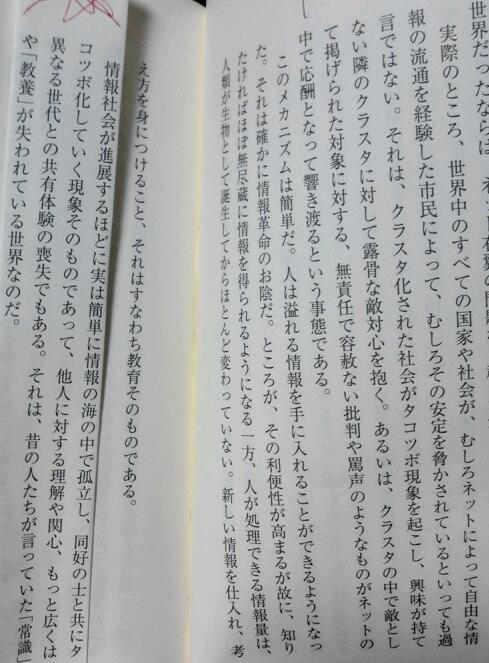 世界だったならば、ネット右翼の問題
実際のところ、世界中のすべての国家や社会が、むしろネットによって自由な情
報の流通を経験した市民によって、むしろその安定を脅かされているといっても過
言ではない。それは、クラスタ化された社会がタコツボ現象を起こし、興味が持て
ない隣のクラスタに対して露骨な敵対心を抱く。あるいは、クラスタの中で敵とし
て掲げられた対象に対する、無責任で容赦ない批判や罵声のようなものがネットの
中で応酬となって響き渡るという事態である。
このメカニズムは簡単だ。人は溢れる情報を手に入れることができるようになっ
た。それは確かに情報革命のお陰だ。ところが、その利便性が高まるが故に、知り
たければほぼ無尽蔵に情報を得られるようになる一方、人が処理できる情報量は、
人類が生物として誕生してからほとんど変わっていない。新しい情報を仕入れ、考
え方を身につけること、それはすなわち教育そのものである。
情報社会が進展するほどに実は簡単に情報の海の中で孤立し、同好の士と共にタ
コツボ化していく現象そのものであって、他人に対する理解や関心、もっと広くは
異なる世代との共有体験の喪失でもある。それは、昔の人たちが言っていた「常識」
や「教養」が失われている世界なのだ。